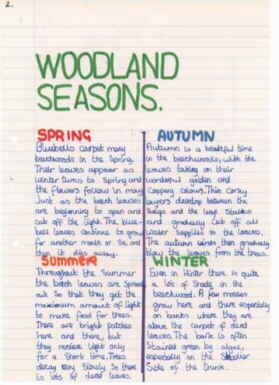 2.
WOODLAND
SEASONS.
SPRING
Bluebells carpet many
beechwoods in the Spring.
Their leaves appear as
winter turns to Spring and
the flowers follow in may
Just as the beech leaves
are beginning to open and
cut off the light. The blue-
bell leaves continue to grow
for another month or so and
then die away.
AUTUMN
Autumn is a beautiful time
in the beechwoods, with the
leaves taking on their
wonderful golden and
coppery colours. Thin corky
layers develop between the
twigs and the leaf stalks
and gradually cut off all
water supplies to the leaves.
The autumn winds then gradually
blow the leaves from the trees.
Summer
Throughout the Summer
the beech leaves are spread
out so that they get the
maximum amount of light
to make food for trees.
There are bright patches
here and there, but
they receive light only
for a short time. Trees
decay very slowly so there
is lots of dead leaves.
WINTER
Even in Winter there is quite
a lot of Shade in the
beechwood. A few mosses
grow here and there especially
on banks where they are
above the carpet of dead
leaves. The bark is often
stained green by algae,
especially on the
Side of the trunk.